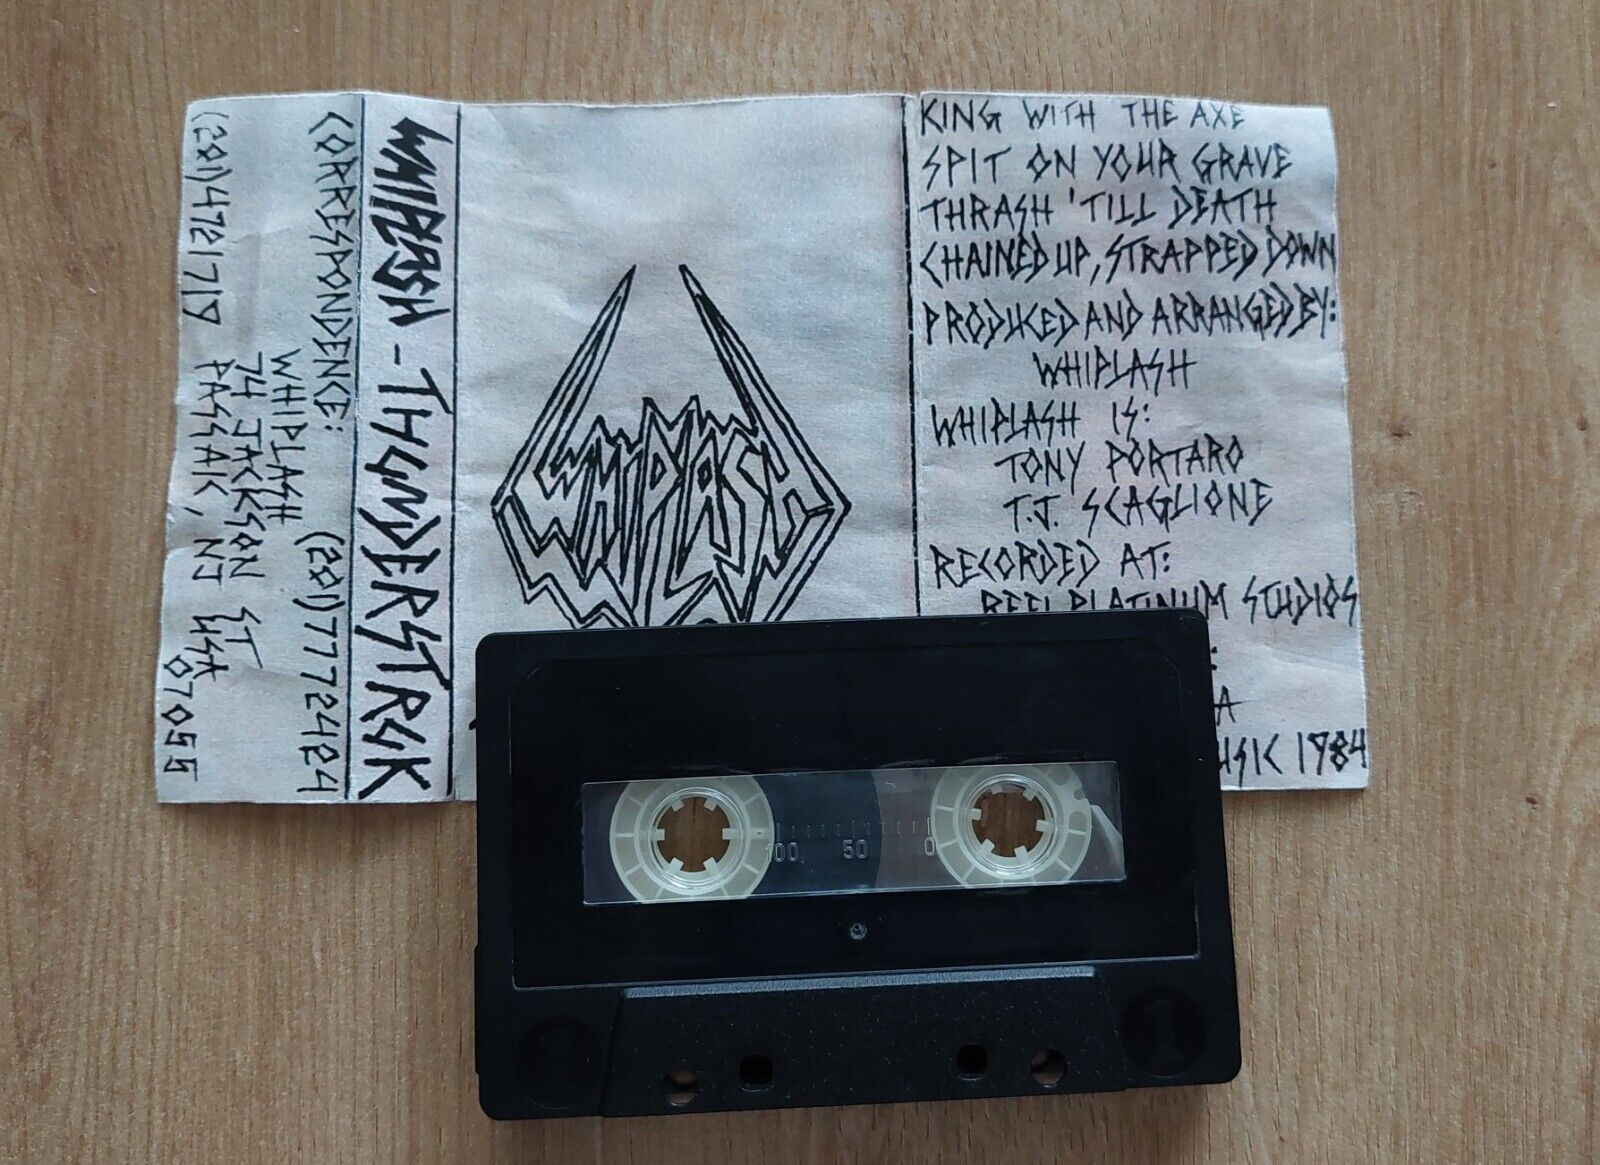 (201)4721719
CORRESPONDENCE:
WHIPLASH (201)7772424
74 JACKSON ST
PASSAIK, NJ USA
07055
WHIPLASH - THUNDERSTRUK
WHIPLASH
KING WITH THE AXE
SPIT ON YOUR GRAVE
THRASH 'TILL DEATH
CHAINED UP, STRAPPED DOWN
PRODUCED AND ARRANGED BY:
WHIPLASH
WHIPLASH IS:
TONY PORTARO
T.J. SCAGLIONE
RECORDED AT:
REEL PLATINUM STUDIOS
1984
100 50 0
1